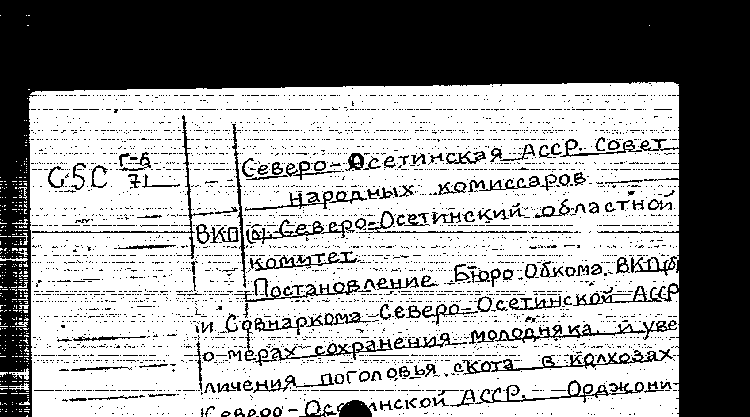 G5C Г-6/71
Северо-Осетинская АССР. Совет
народных комиссаров
ВКП(б). Северо-Осетинский областной
комитет.
Постановление Бюро Обкома ВКП(б)
и Совнаркома Северо-Осетинской АССР
о мерах сохранения молодняка и уве-
личения поголовья скота в колхозах
Северо-Осетинской АССР. Орджони-